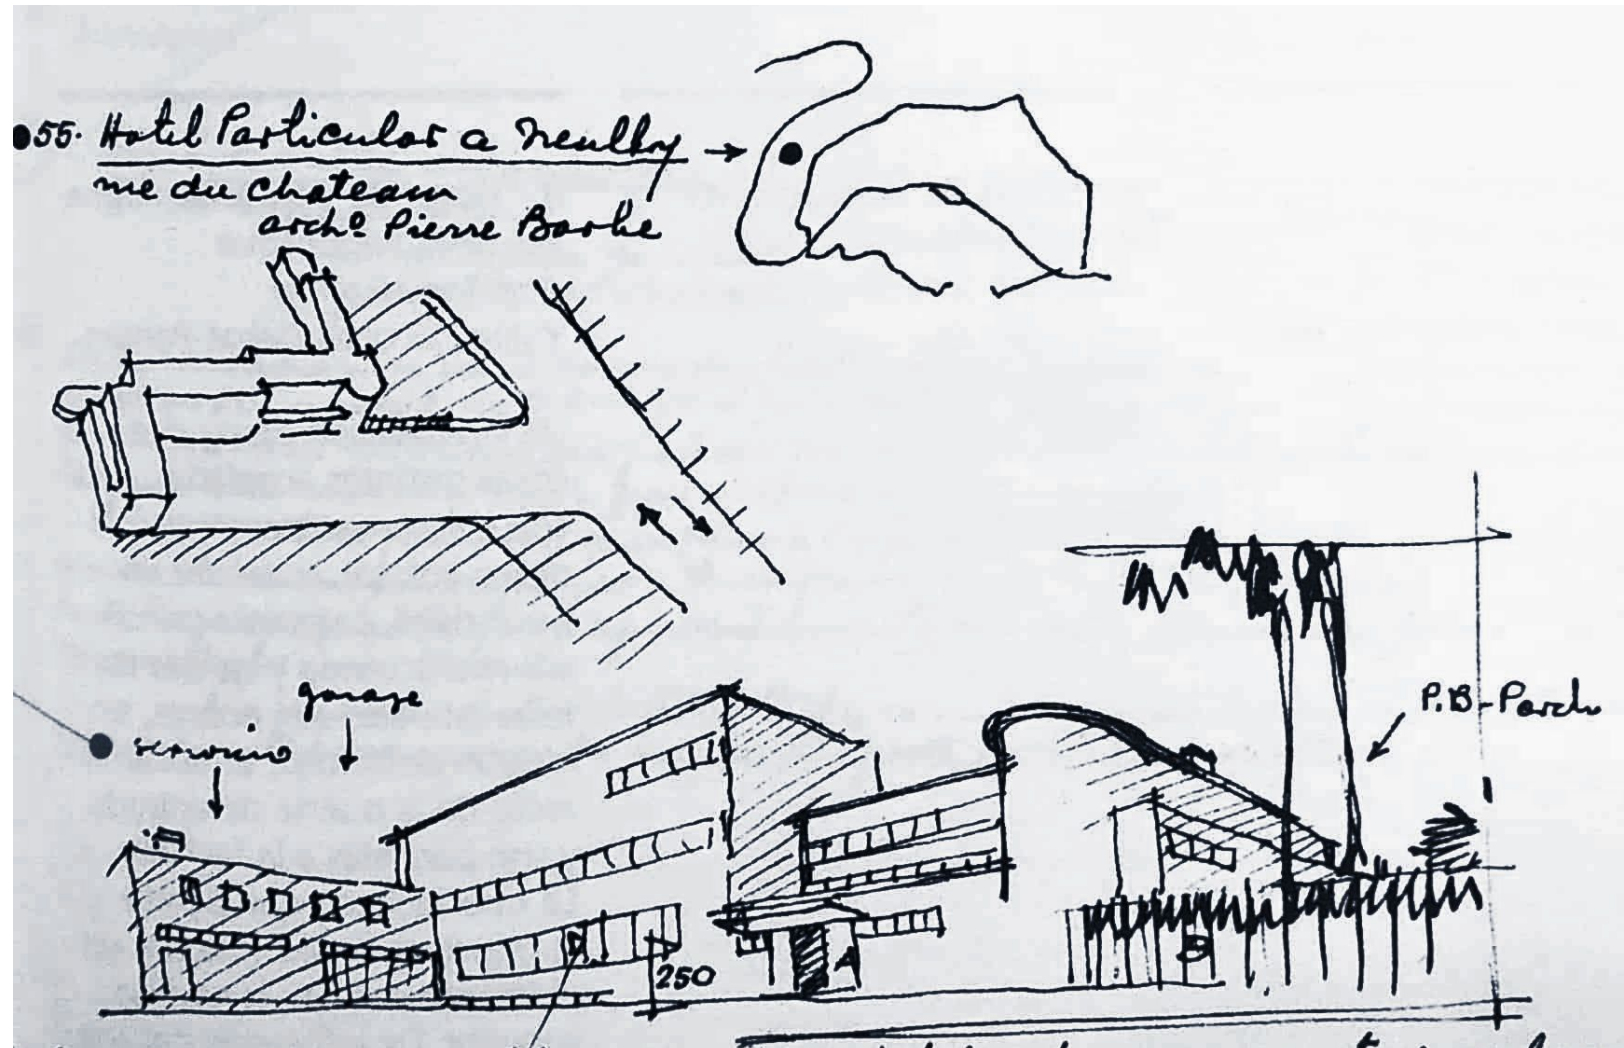 55. Hotel Particular a Neully
rue du Chateau
archº Pierre Barbe
garage
servicio
P.B-Parch
250
A
B